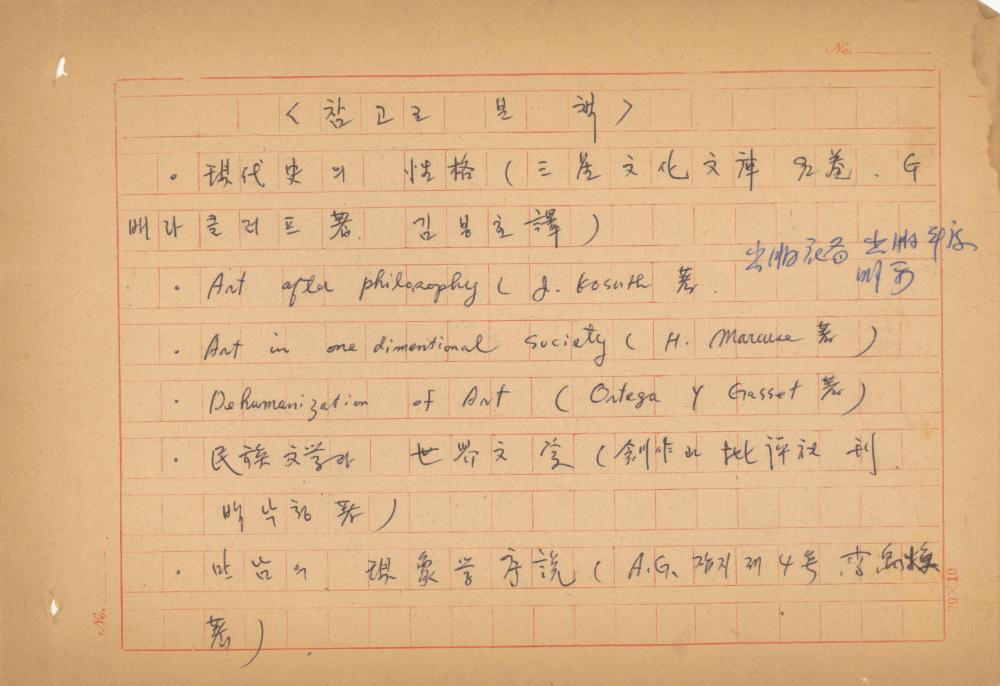 No.
〈 참고로 본 책 〉
。 現代史의 性格 ( 三星文化文庫 92卷. G
배라클러프 著. 김봉호 譯 )
出版社名 出版年度
明示
· Art after philosophy ( J. Kosuth 著.
· Art in one dimentional society ( H. Marcuse 著 )
· Dehumanization of Art ( Ortega Y Gasset 著 )
· 民族文学과 世界文学 ( 創作과 批評社 刊.
백낙청 著 )
· 만남의 現象学序説 ( A.G. 잡지 제4号 李禹煥
著 ).
No.